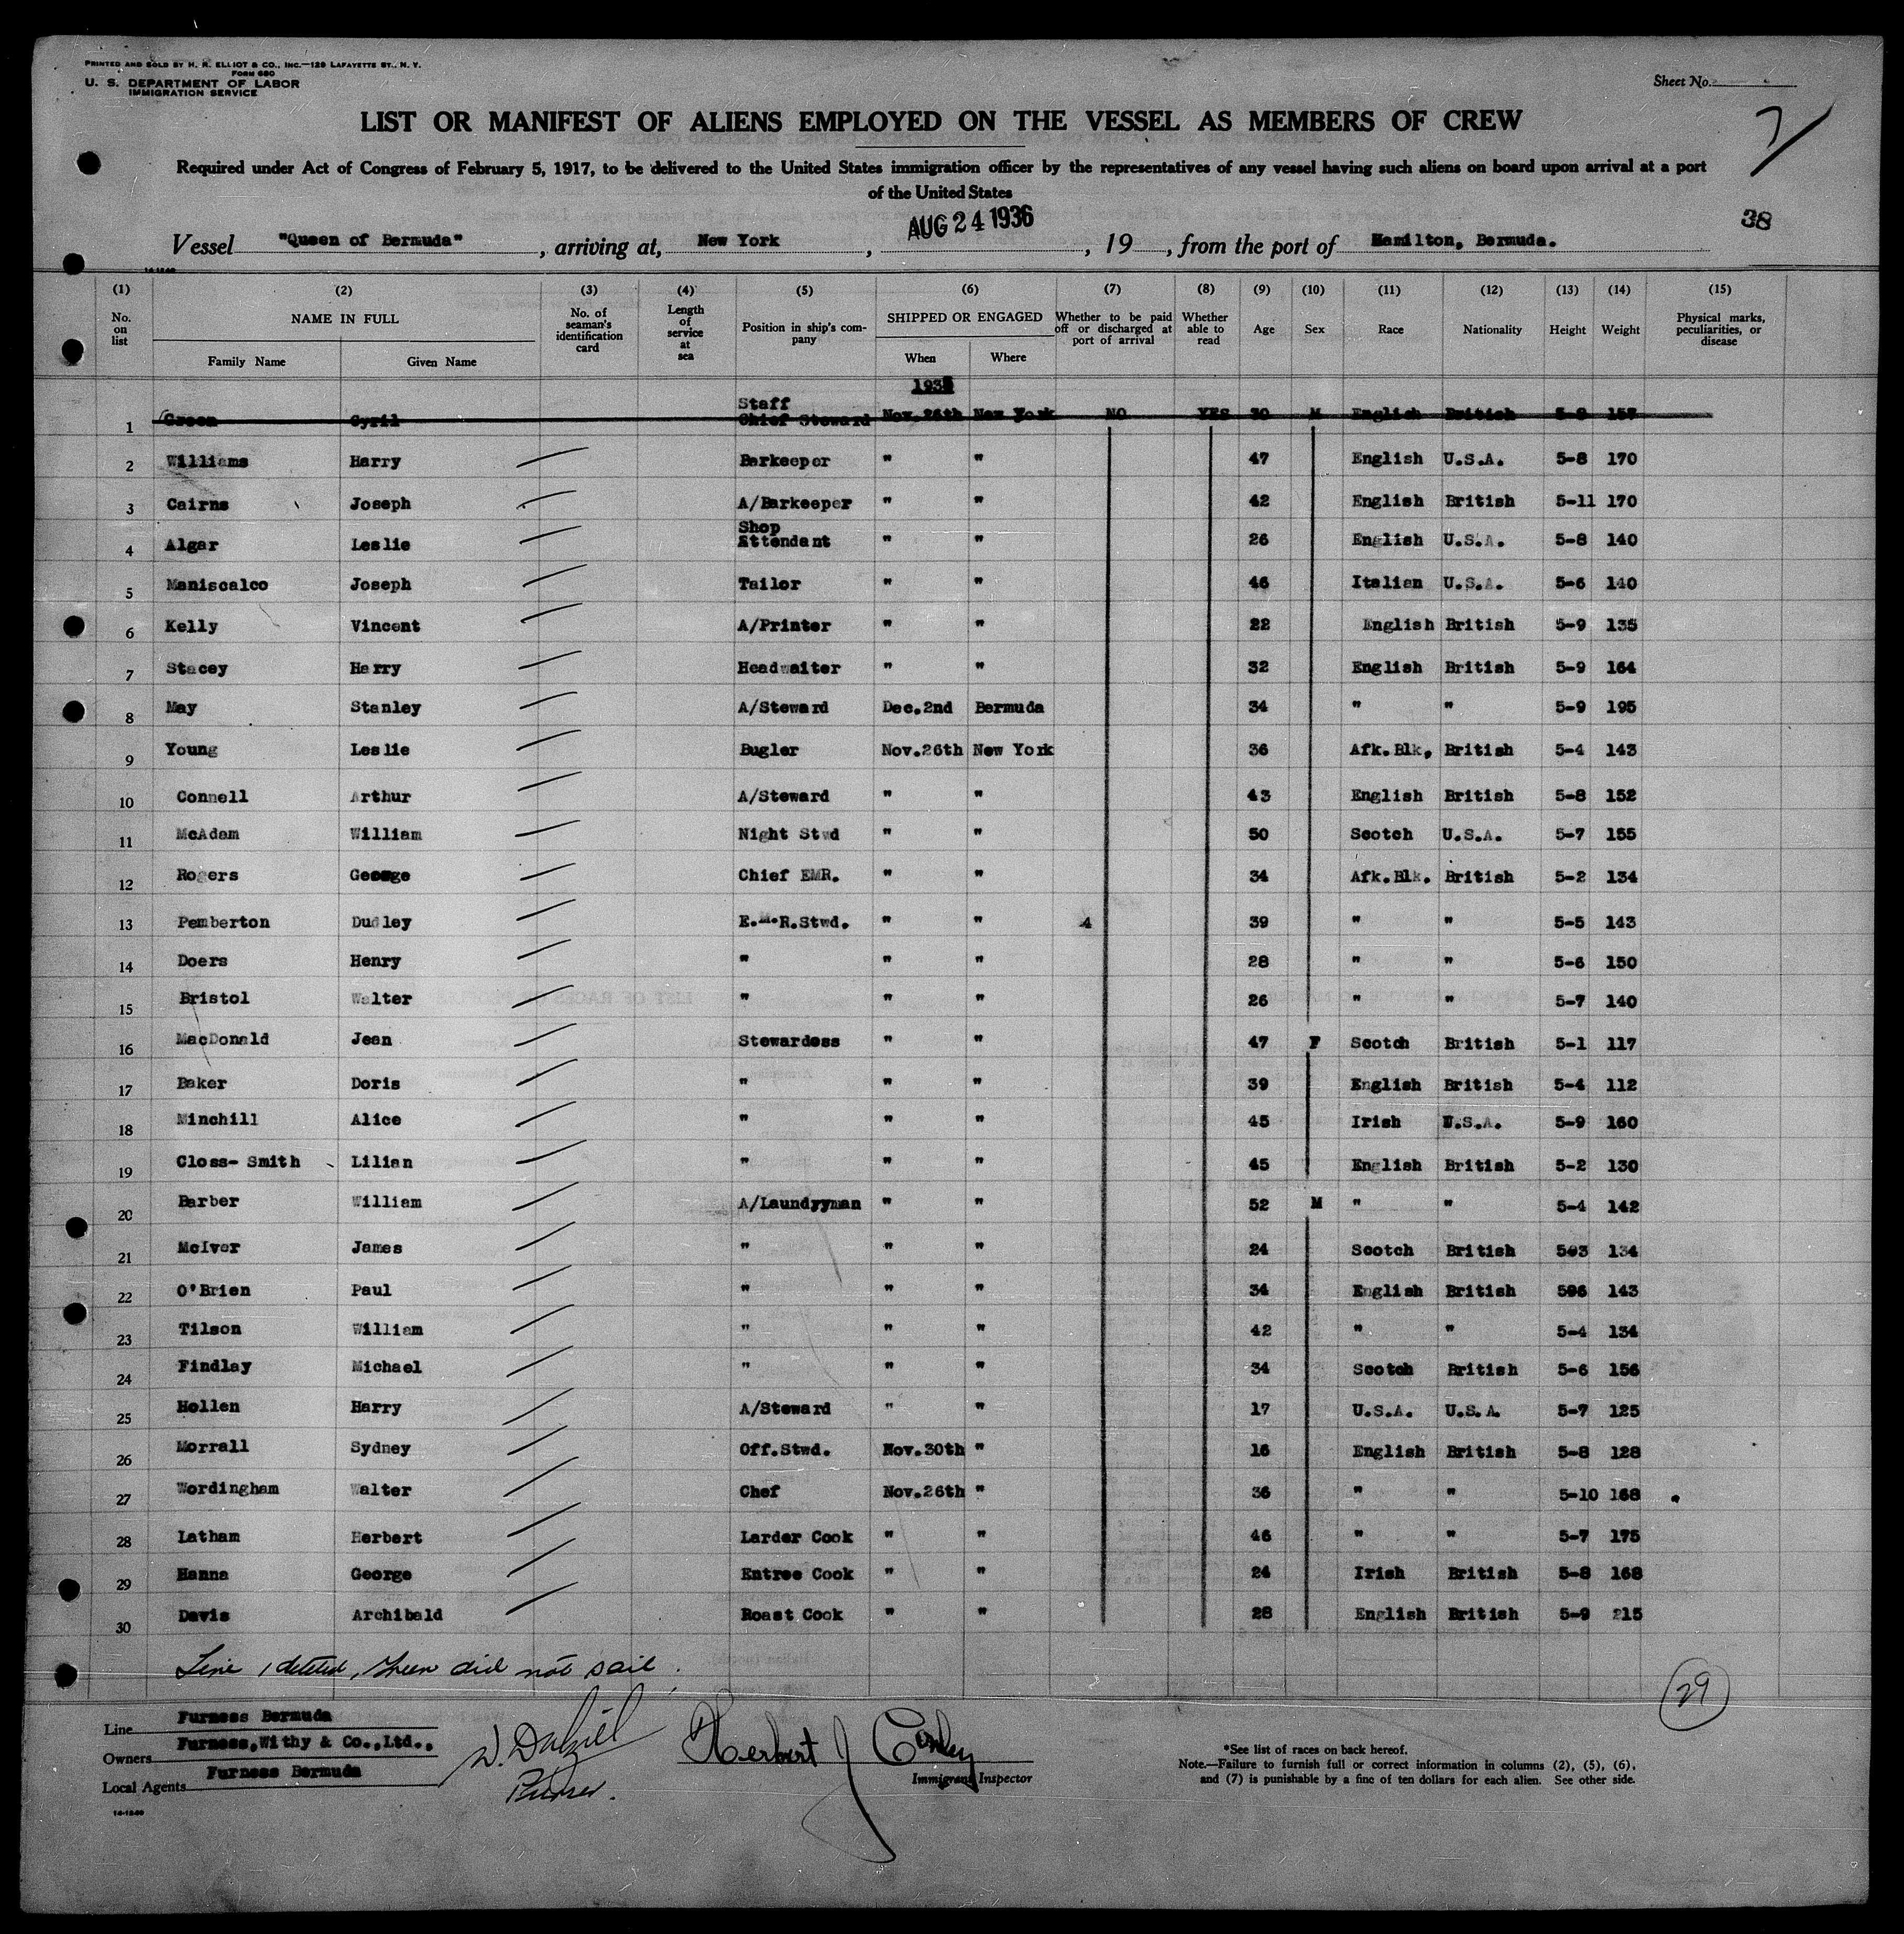 PRINTED AND SOLD BY H. R. ELLIOT & CO., INC.—129 LAFAYETTE ST., N. Y.
FORM 680
U. S. DEPARTMENT OF LABOR
IMMIGRATION SERVICE
Sheet No.
LIST OR MANIFEST OF ALIENS EMPLOYED ON THE VESSEL AS MEMBERS OF CREW
Required under Act of Congress of February 5, 1917, to be delivered to the United States immigration officer by the representatives of any vessel having such aliens on board upon arrival at a port
of the United States
AUG 24 1936
38
Vessel "Queen of Bermuda", arriving at, New York, , 19 , from the port of Hamilton, Bermuda.
14-1240
(1) (2) (3) (4) (5) (6) (7) (8) (9) (10) (11) (12) (13) (14) (15)
No. on list NAME IN FULL Family Name Given Name No. of seaman's identification card Length of service at sea Position in ship's company SHIPPED OR ENGAGED When Where Whether to be paid off or discharged at port of arrival Whether able to read Age Sex Race Nationality Height Weight Physical marks, peculiarities, or disease
1 Green Cyril Staff Chief Steward Nov.26th New York NO YES 30 M English British
2 Williams Harry Barkeeper " " 47 English U.S.A. 5-8 170
3 Cairns Joseph A/Barkeeper " " 42 English British 5-11 170
4 Algar Leslie Shop Attendant " " 26 English U.S.A. 5-8 140
5 Maniscalco Joseph Tailor " " 46 Italian U.S.A. 5-6 140
6 Kelly Vincent A/Printer " " 22 English British 5-9 135
7 Stacey Harry Headwaiter " " 32 English British 5-9 164
8 May Stanley A/Steward Dec.2nd Bermuda 34 " " 5-9 195
9 Young Leslie Bugler Nov.26th New York 36 Afk.Blk, British 5-4 143
10 Connell Arthur A/Steward " " 43 English British 5-8 152
11 McAdam William Night Stwd " " 50 Scotch U.S.A. 5-7 155
12 Rogers George Chief EMR. " " 34 Afk.Blk. British 5-2 134
13 Pemberton Dudley E.M.R.Stwd. " " 4 39 " " 5-5 143
14 Doers Henry " " " 28 " " 5-6 150
15 Bristol Walter " " " 26 " " 5-7 140
16 MacDonald Jean Stewardess " " 47 F Scotch British 5-1 117
17 Baker Doris " " " 39 English British 5-4 112
18 Minchill Alice " " " 45 Irish U.S.A. 5-9 160
19 Closs- Smith Lilian " " " 45 English British 5-2 130
20 Barber William A/Laundyyman " " 52 M " " 5-4 142
21 McIver James " " " 24 Scotch British 503 134
22 O'Brien Paul " " " 34 English British 506 143
23 Tilson William " " " 42 " " 5-4 134
24 Findlay Michael " " " 34 Scotch British 5-6 156
25 Hollen Harry A/Steward " " 17 U.S.A. U.S.A. 5-7 125
26 Morrall Sydney Off.Stwd. Nov.30th " 16 English British 5-8 128
27 Wordingham Walter Chef Nov.26th " 36 " " 5-10 168
28 Latham Herbert Larder Cook " " 46 " " 5-7 175
29 Hanna George Entree Cook " " 24 Irish British 5-8 168
30 Davis Archibald Roast Cook " " 28 English British 5-9 215
Line 1 deleted, Green did not sail.
29
Line Furness Bermuda
Owners Furness,Withy & Co.,Ltd.,
Local Agents Furness Bermuda
W. Dalziel
Purser.
Herbert J Conley
Immigrant Inspector
*See list of races on back hereof.
Note.—Failure to furnish full or correct information in columns (2), (5), (6),
and (7) is punishable by a fine of ten dollars for each alien. See other side.
14-1240